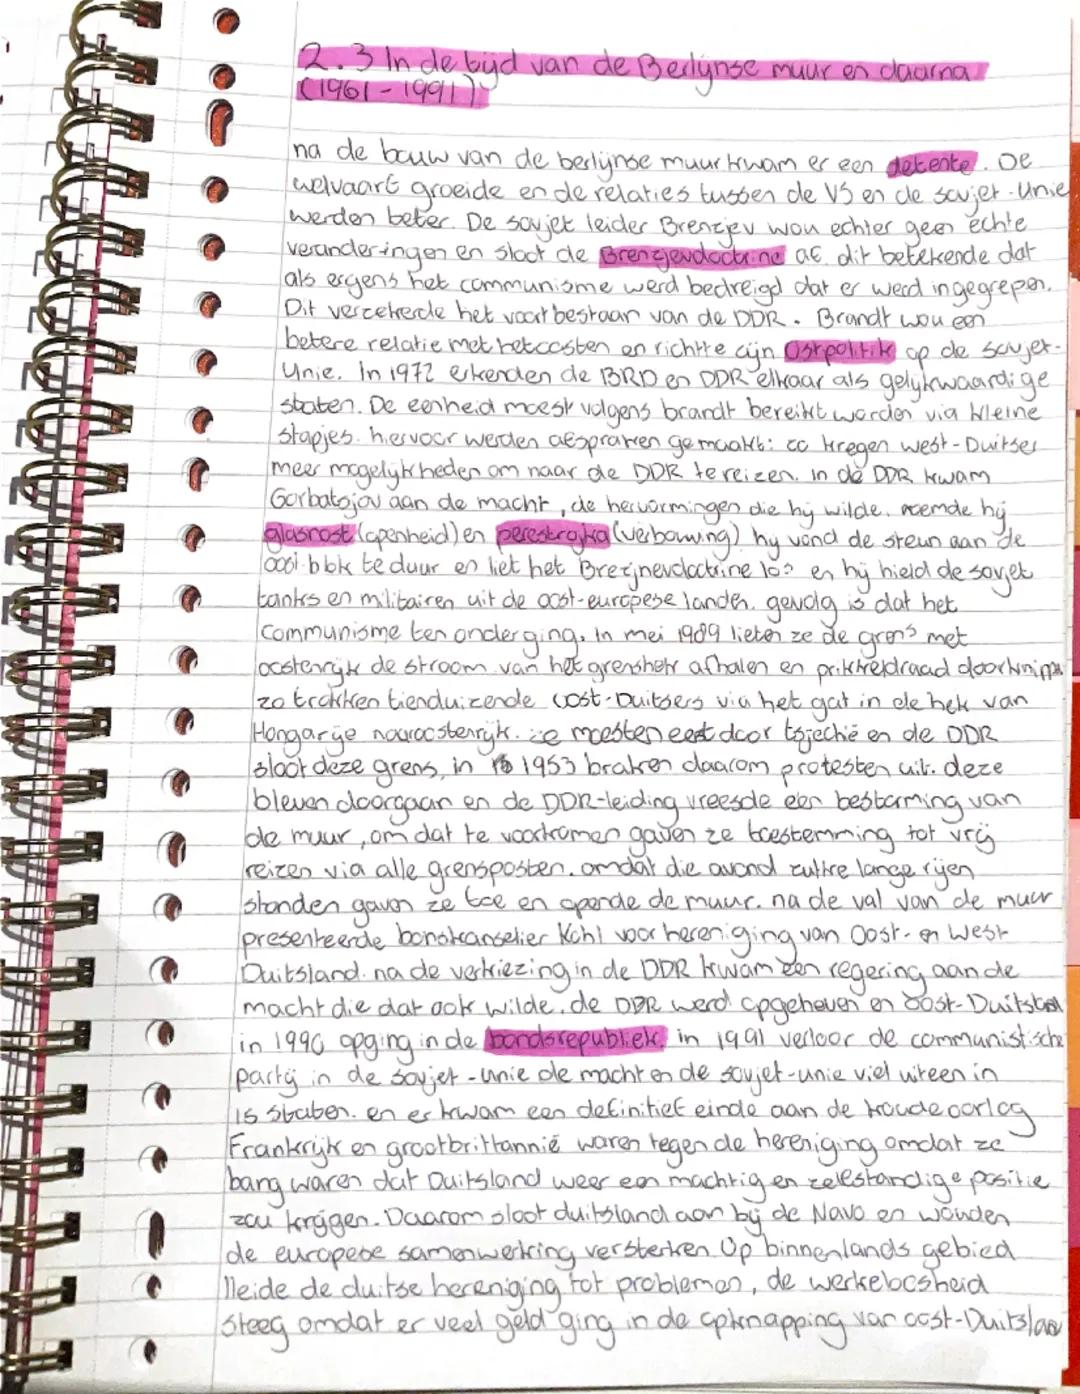 2.3 In de tijd van de Berlijnse muur en daarna
(1961-1991)
na de bouw van de berlijnse muur kwam er een detente. De
welvaart groeide en de relaties tussen de VS en de sovjet-Unie
werden beter. De sovjet leider Brenzjev wou echter geen echte
veranderingen en sloot de Brenzjevdoctrine af. dit betekende dat
als ergens het communisme werd bedreigd dat er werd ingegrepen.
Dit verzekerde het voortbestaan van de DDR. Brandt wou een
betere relatie met het oosten en richtte zijn Ostpolitik op de sovjet-
Unie. In 1972 erkenden de BRD en DDR elkaar als gelijkwaardige
staten. De eenheid moest volgens brandt bereikt worden via kleine
stapjes. hiervoor werden afspraken gemaakt: zo kregen west-Duitser
meer mogelijkheden om naar de DDR te reizen. in de DDR kwam
Gorbatsjov aan de macht, de hervormingen die hij wilde. noemde hij
glasnost (openheid) en perestrojka (verbouwing) hij vond de steun aan de
oost blok te duur en liet het Brezjnevdoctrine los en hij hield de sovjet
tanks en militairen uit de oost-europese landen. gevolg is dat het
communisme ten onder ging. In mei 1989 lieten ze de grens met
oostenrijk de stroom van het grenshek afhalen en prikkeldraad doorknippen
zo trokken tienduizende oost-Duitsers via het gat in de hek van
Hongarije naar oostenrijk. ze moesten eest door tsjechië en de DDR
sloot deze grens, in 1953 braken daarom protesten uit. deze
bleven doorgaan en de DDR-leiding vreesde een bestorming van
de muur, om dat te voorkomen gaven ze toestemming tot vrij
reizen via alle grensposten. omdat die avond zulke lange rijen
stonden gaven ze toe en opende de muur. na de val van de muur
presenteerde bonskanselier Kohl voor hereniging van Oost- en West-
Duitsland. na de verkiezing in de DDR kwam een regering aan de
macht die dat ook wilde. de DDR werd opgeheven en Oost-Duitsland
in 1990 opging in de bondsrepubliek. in 1991 verloor de communistische
partij in de sovjet-unie de macht en de sovjet-unie viel uiteen in
15 staten. en er kwam een definitief einde aan de koude oorlog
Frankrijk en grootbrittannië waren tegen de hereniging omdat ze
bang waren dat Duitsland weer een machtig en zelfstandige positie
zou krijgen. Daarom sloot duitsland aan bij de Navo en wouden
de europese samenwerking versterken. Op binnenlands gebied
lleide de duitse hereniging tot problemen, de werkeloosheid
steeg omdat er veel geld ging in de opknapping van oost-Duitsland